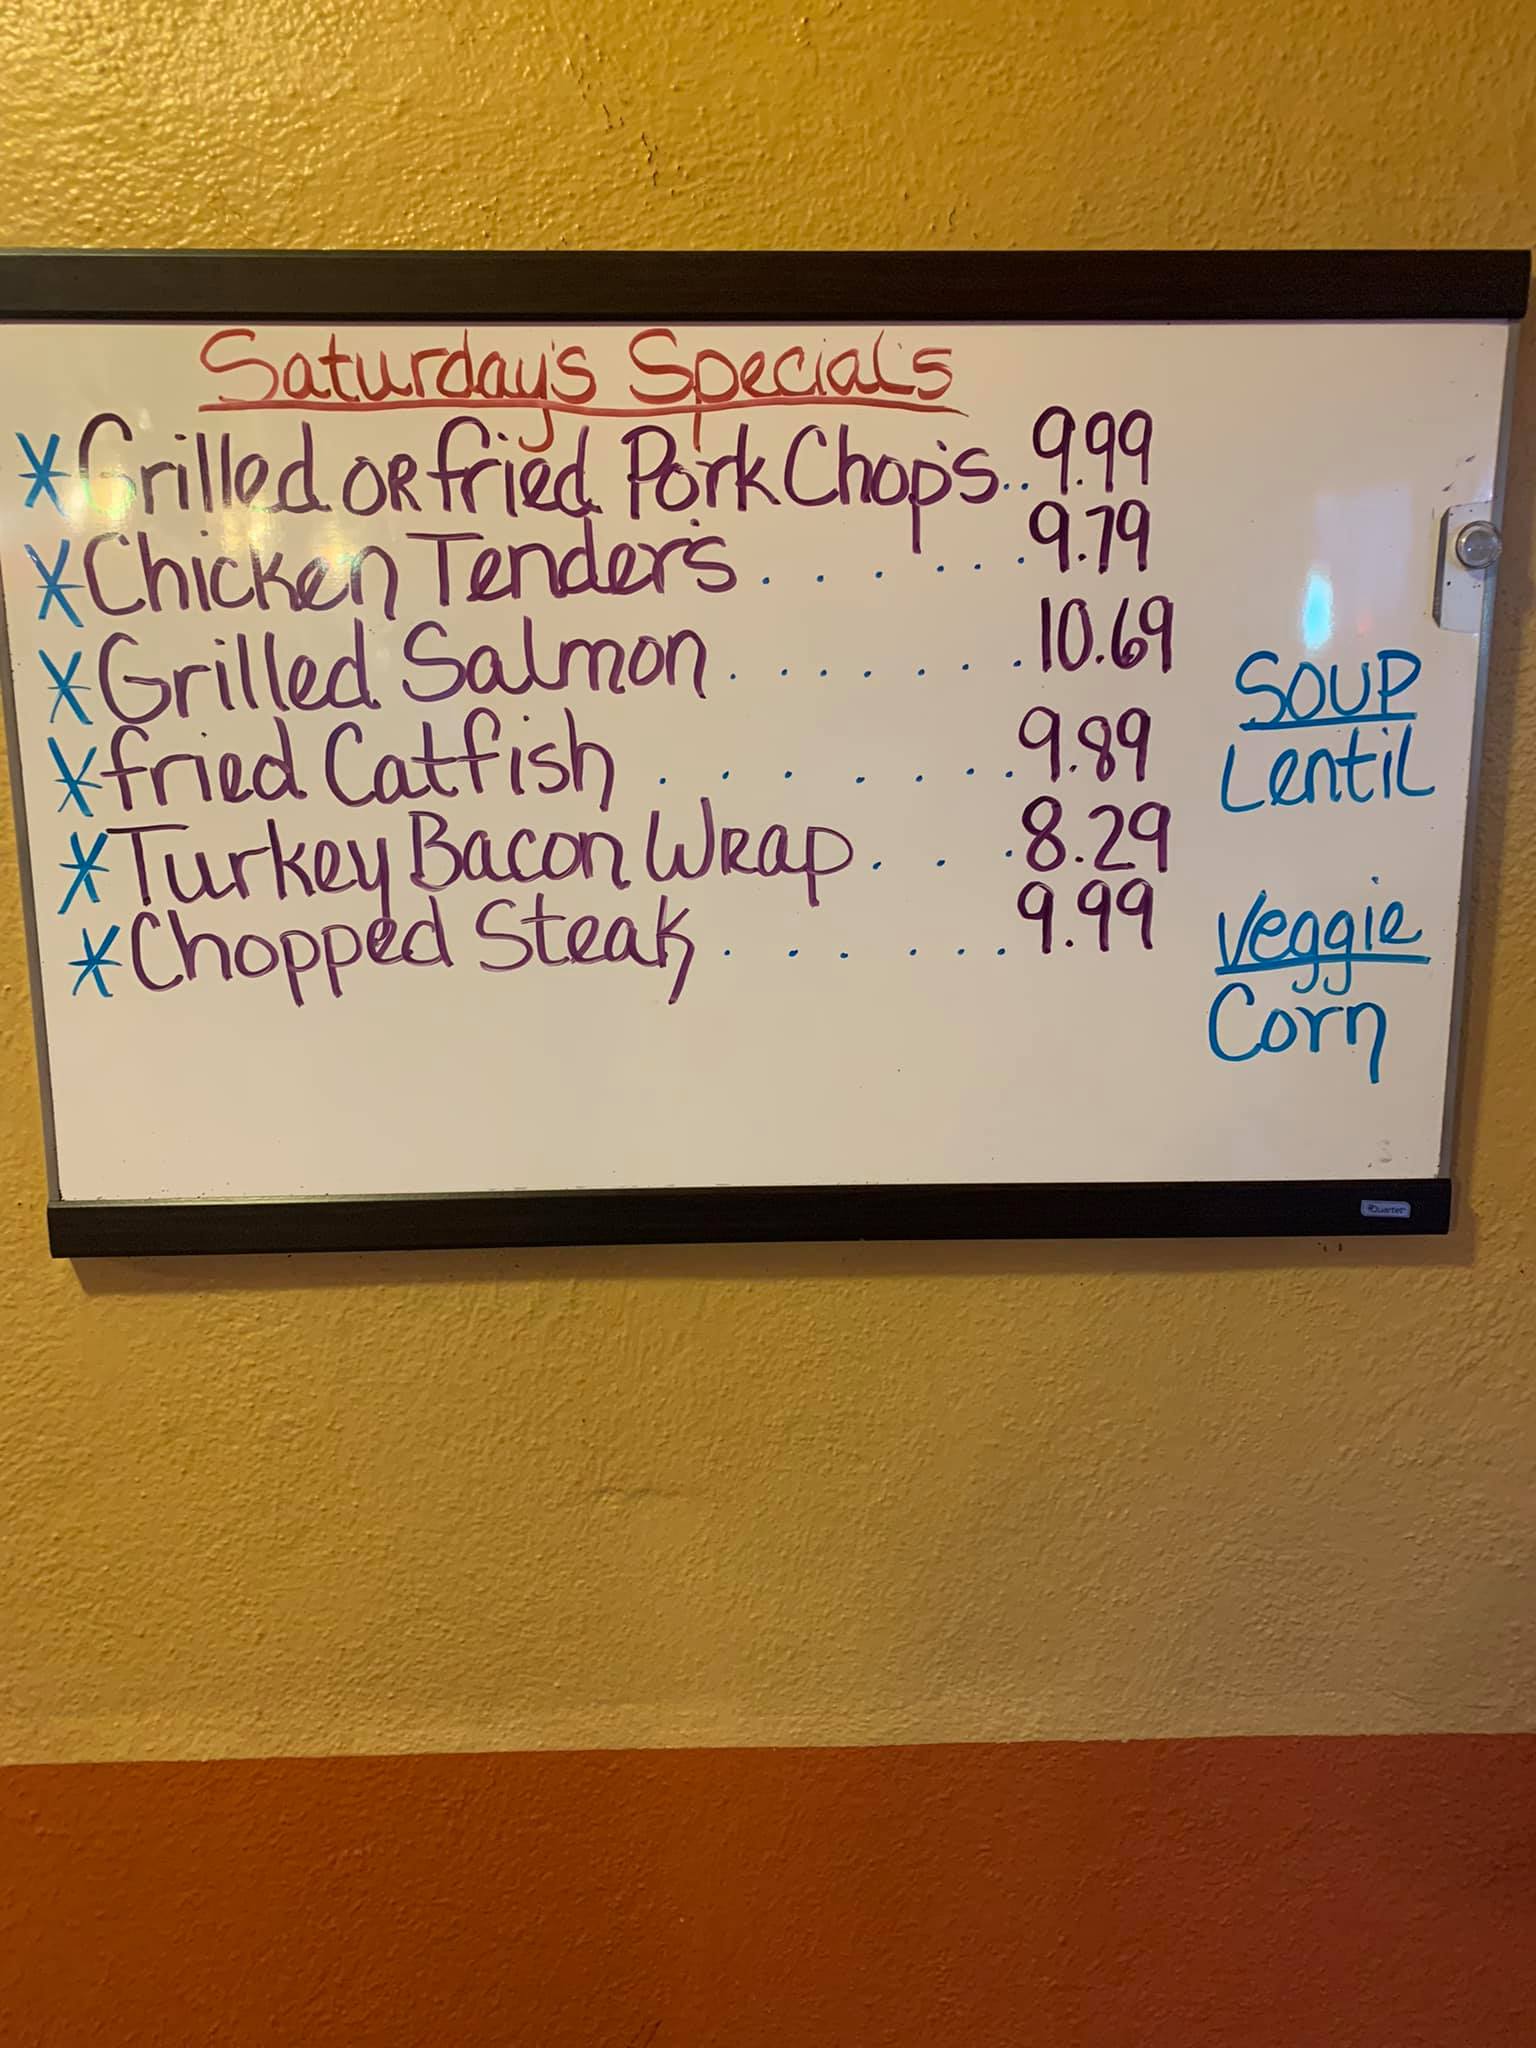 Saturday's Special's
*Grilled OR fried Pork Chop's..9.99
*Chicken Tender's......9.79
*Grilled Salmon.......10.69
*fried Catfish........9.89
*Turkey Bacon Wrap...8.29
*Chopped Steak......9.99
SOUP
Lentil
Veggie
Corn
Quartet